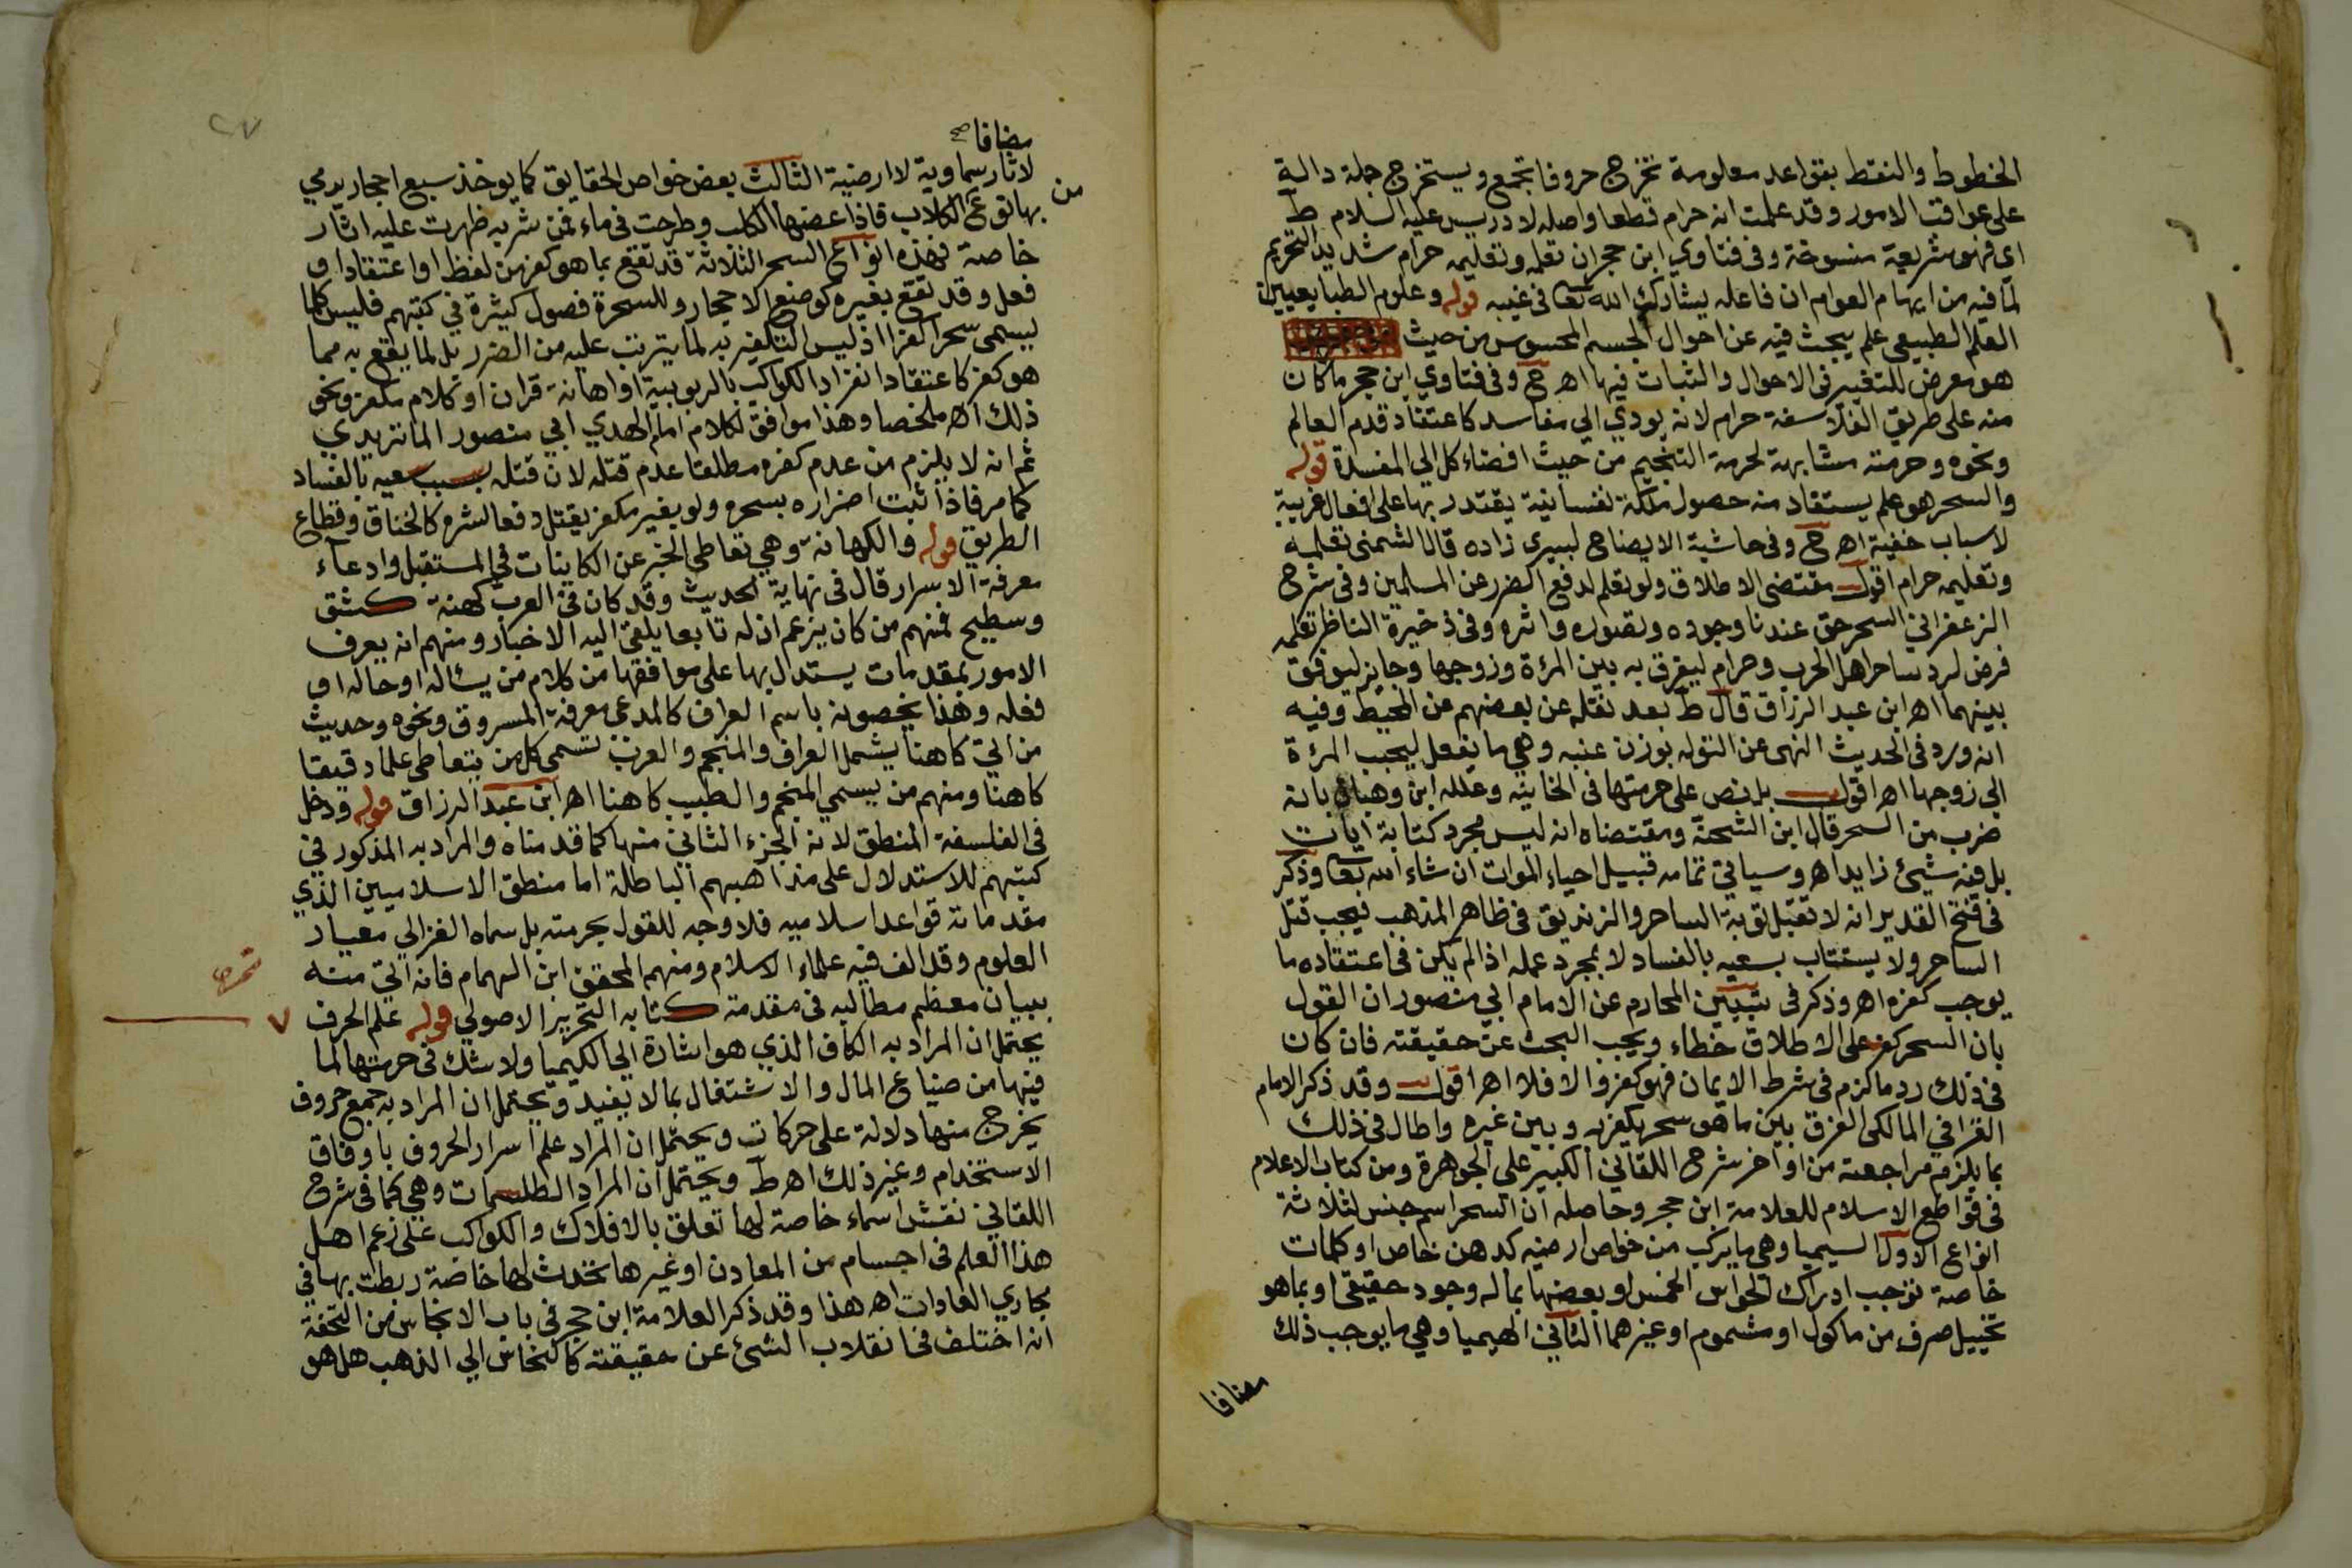 الخطوط والنقط بقواعد معلومة تخرج حروفا تجمع ويستخرج جملة دالة
على عواقب الامور وقد علمت انه حرام قطعا واصله لادريس عليه السلام ط
اى فهو شريعة منسوخة وفى فتاوي ابن حجر ان تعلمه وتعليمه حرام شديد التحريم
لما فيه من ايهام العوام ان فاعله يشارك الله تعا فى غيبه قوله وعلوم الطبايعيين
العلم الطبيعى علم يبحث فيه عن احوال الجسم المحسوس من حيث
هو معرض للتغير فى الاحوال والثبات فيها اهر ح وفى فتاوي ابن حجر ما كان
منه على طريق الفلاسفة حرام لانه يودي الي مفاسد كاعتقاد قدم العالم
ونحوه وحرمته مشابهة لحرمة التنجيم من حيث افضاء كل الي المفسدة قوله
والسحر هو علم يستفاد منه حصول ملكة نفسانية يقتدر بها على افعال غريبة
لاسباب خفية اهر ح وفى حاشية الايضاح لبيرى زاده قال الشمنى تعلمه
وتعليمه حرام اقول مقتضى الاطلاق ولو تعلم لدفع الضرر عن المسلمين وفى شرح
الزعفراني السحر حق عندنا وجوده وتصوره واثره وفى ذخيرة الناظر تعلمه
فرض لرد ساحر اهل الحرب وحرام ليفرق به بين المرءة وزوجها وجايز ليوفق
بينهما اهر ابن عبد الرزاق قال ط بعد نقله عن بعضهم عن المحيط وفيه
انه ورد فى الحديث النهى عن التوله بوزن عنبه وهي ما يفعل ليحبب المرءة
الي زوجها اهر اقول بل نص على حرمتها فى الخانيه وعلله ابن وهبان بانه
ضرب من السحر قال ابن الشحنة ومقتضاه انه ليس مجرد كتابة ايات
بل فيه شيئ زايد اهر وسياتي تمامه قبيل احياء الموات ان شاء الله تعا وذكر
فى فتح القدير انه لا تقبل توبة الساحر والزنديق فى ظاهر المذهب فيجب قتل
الساحر ولا يستتاب بسعيه بالفساد لا بمجرد عمله اذا لم يكن فى اعتقاده ما
يوجب كفره اهر وذكر فى تبيين المحارم عن الامام ابي منصور ان القول
بان السحر كفر على الاطلاق خطاء ويجب البحث عن حقيقته فان كان
فى ذلك رد ما لزم فى شرط الايمان فهو كفر والا فلا اهر اقول وقد ذكر الامام
القرافي المالكى الفرق بين ما هو سحر يكفر به وبين غيره واطال فى ذلك
بما يلزم مراجعته من اواخر شرح اللقاني الكبير على الجوهرة ومن كتاب الاعلام
فى قواطع الاسلام للعلامة ابن حجر وحاصله ان السحر اسم جنس لثلاثة
انواع الاول السيميا وهي ما يركب من خواص ارضيه كدهن خاص او كلمات
خاصة توجب ادراك الحواس الخمس او بعضها بما له وجود حقيقى او بما هو
تخييل صرف من ماكول او مشموم او غيرهما الثاني الهيميا وهي ما يوجب ذلك
مضافا
٢٧
مضافا صح
لاثار سماوية لا ارضية الثالث بعض خواص الحقايق كما يوخذ سبع احجار يرمي
من
بها نوع الكلاب فاذا عضها الكلب وطرحت فى ماء فمن شربه ظهرت عليه اثار
خاصة فهذه انواع السحر الثلاثة قد تقع بما هو كفر من لفظ او اعتقاد او
فعل وقد تقع بغيره كوضع الاحجار وللسحرة فصول كثيرة في كتبهم فليس كلما
يسمى سحرا كفرا اذ ليس التكفير به لما يترتب عليه من الضرر بل لما يقع به مما
هو كفر كاعتقاد انفراد الكواكب بالربوبية او اهانة قران او كلام مكفر ونحو
ذلك اهر ملخصا وهذا موافق لكلام امام الهدي ابي منصور الماتريدي
ثم انه لا يلزم من عدم كفره مطلقا عدم قتله لان قتله بسبب سعيه بالفساد
كما مر فاذا ثبت اضراره بسحره ولو بغير مكفر يقتل دفعا لشره كالخناق وقطاع
الطريق قوله والكهانة وهي تعاطى الخبر عن الكاينات في المستقبل وادعاء
معرفة الاسرار قال فى نهاية الحديث وقد كان فى العرب كهنة كشق
وسطيح فمنهم من كان يزعم ان له تابعا يلقى اليه الاخبار ومنهم انه يعرف
الامور بمقدمات يستدل بها على موافقها من كلام من يسئاله او حاله او
فعله وهذا يخصونه باسم العراف كالمدعي معرفة المسروق ونحوه وحديث
من اتي كاهنا يشمل العراف والمنجم والعرب تسمى كل من يتعاطى علما دقيقا
كاهنا ومنهم من يسمي المنجم والطبيب كاهنا اهر ابن عبد الرزاق قوله ودخل
فى الفلسفة المنطق لانه الجزء الثاني منها كما قدمناه والمراد به المذكور في
كتبهم للاستدلال على مذاهبهم الباطلة اما منطق الاسلاميين الذي
مقدماته قواعد اسلاميه فلا وجه للقول بحرمته بل سماه الغزالي معيار
العلوم وقد الف فيه علماء الاسلام ومنهم المحقق ابن الهمام فانه اتي منه
ببيان معظم مطالبه فى مقدمة كتابه التحرير الاصولي قوله علم الحرف
٧
يحتمل ان المراد به الكاف الذي هو اشارة الي الكيميا ولا شك فى حرمتها لما
فيها من ضياع المال والاشتغال بما لا يفيد ويحتمل ان المراد به جمع حروف
يخرج منها دلالة على حركات ويحتمل ان المراد علم اسرار الحروف باوفاق
الاستخدام وغير ذلك اهر ط ويحتمل ان المراد الطلسمات وهي كما فى شرح
اللقاني نقش اسماء خاصة لها تعلق بالافلاك والكواكب على زعم اهل
هذا العلم فى اجسام من المعادن او غيرها تحدث لها خاصة ربطت بها في
مجاري العادات اهر هذا وقد ذكر العلامة ابن حجر فى باب الانجاس من التحفة
انه اختلف فى انقلاب الشئ عن حقيقته كالنحاس الي الذهب هل هو